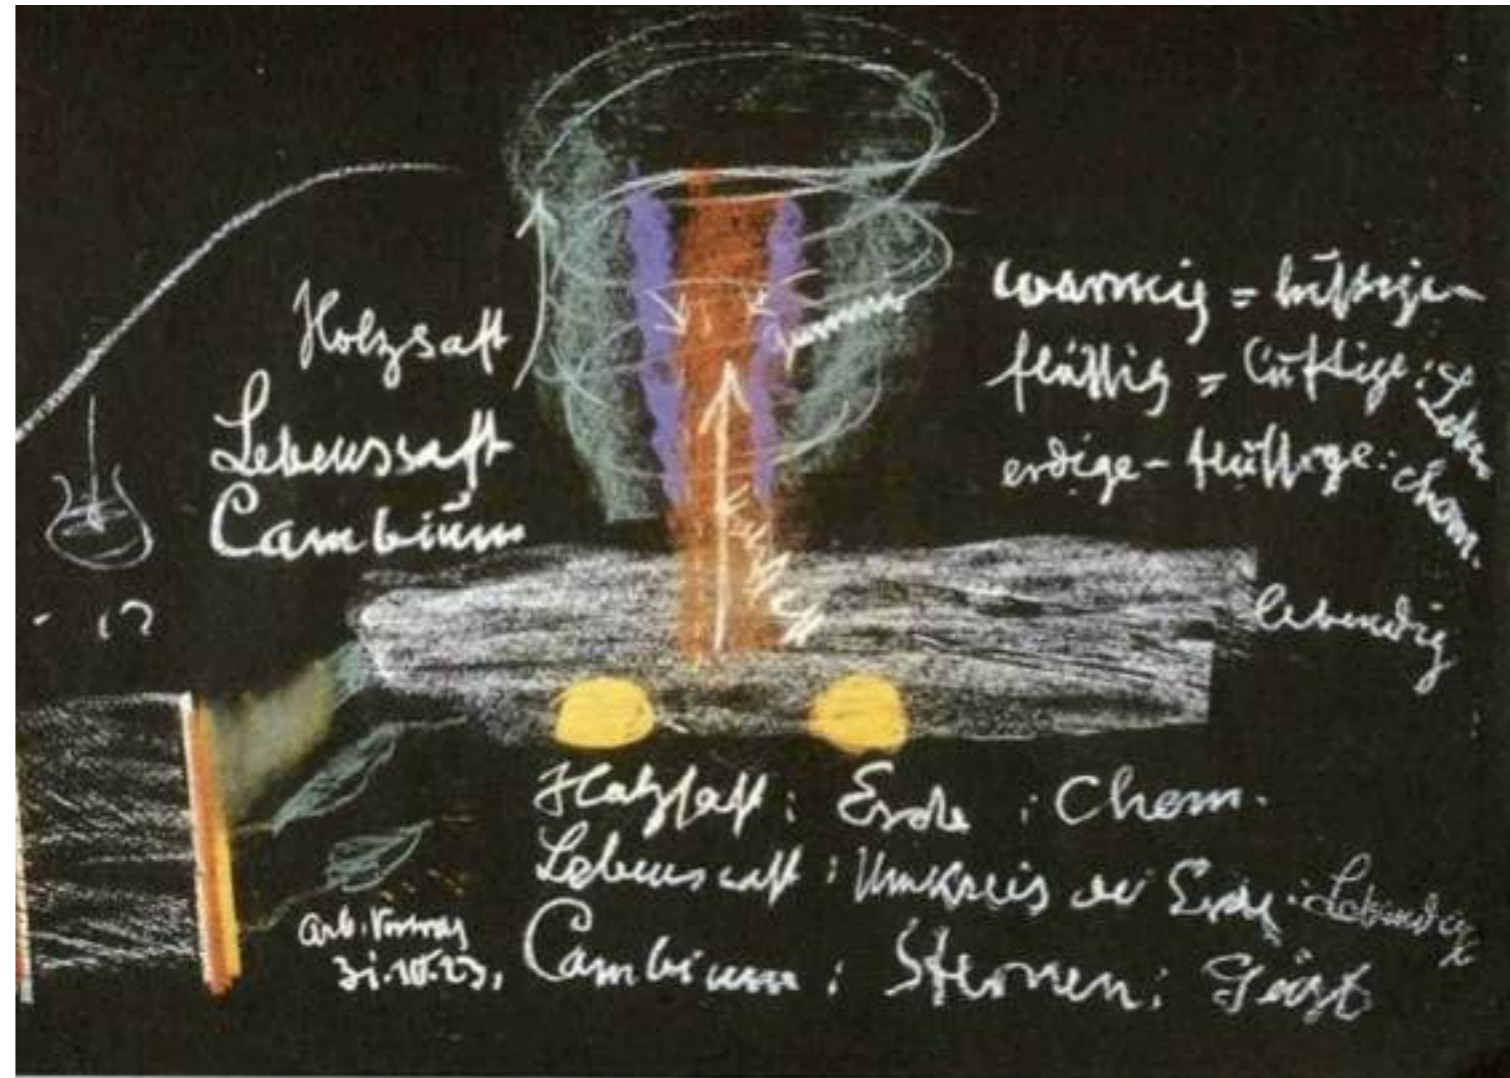 Holzsaft
Lebenssaft
Cambium
warmig = luftige
flüssig = luftige: Leben
erdige - flüssige: chem.
lebendig
Holzsaft: Erde: Chem.
Lebenssaft: Umkreis der Erde: Lebendig
Cambium: Sternen: Geist
arb. Vortrag
31.10.23,